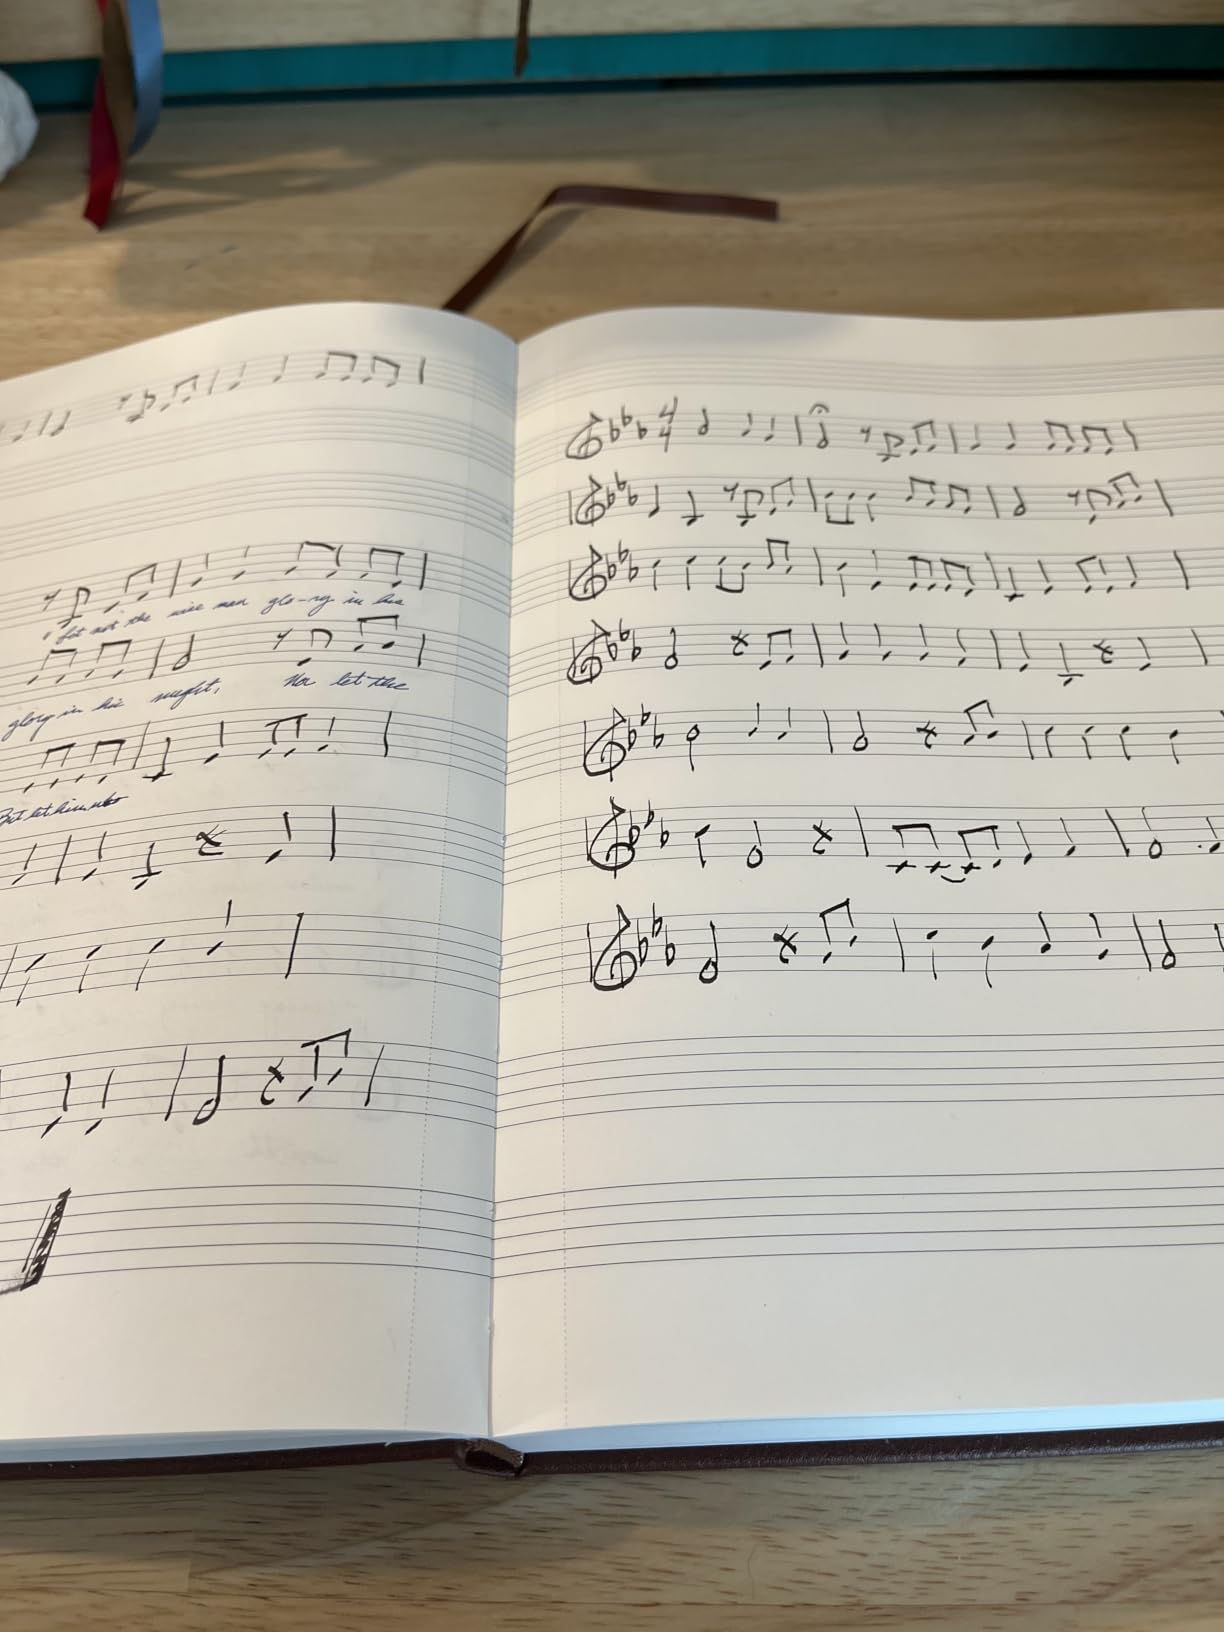 Let not the wise man glo-ry in his
glory in his might, Nor let the
But let him who